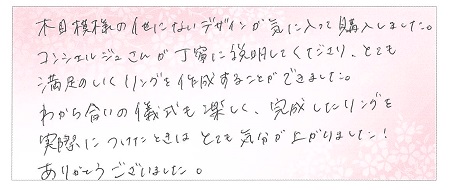 木目模様の他にないデザインが気に入って購入しました。
コンシェルジュさんが丁寧に説明してくださり、とても
満足のいくリングを作成することができました。
わかち合いの儀式も楽しく、完成したリングを
実際につけたときはとても気分が上がりました！
ありがとうございました。